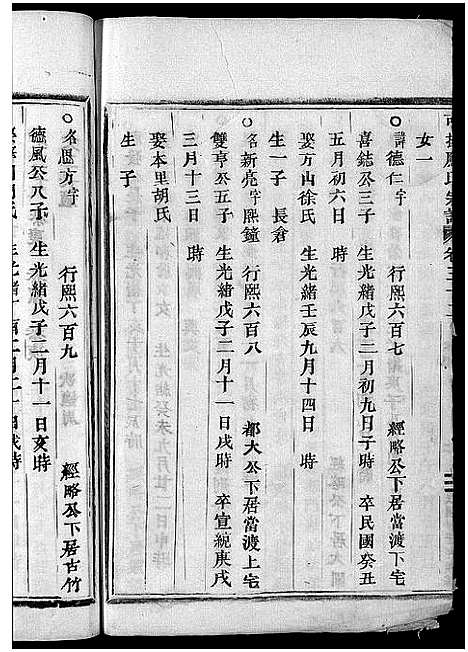 女一
諱德仁字 行熙六百七 經略公下居當渡下宅
喜鋕公三子 生光緒戊子二月初九日子時 卒民國癸丑
五月初六日 時
娶方山徐氏 生光緒壬辰九月十四日 時
生一子 長倉
名新亮字熙鐘 行熙六百八 都大公下居當渡上宅
雙亨公五子 生光緒戊子二月十一日戌時 卒宣統庚戌
三月十三日 時
娶本里胡氏
生子
名恩方字 行熙六百九 經略公下居古竹
德風公八子 生光緒戊子二月十一日亥時